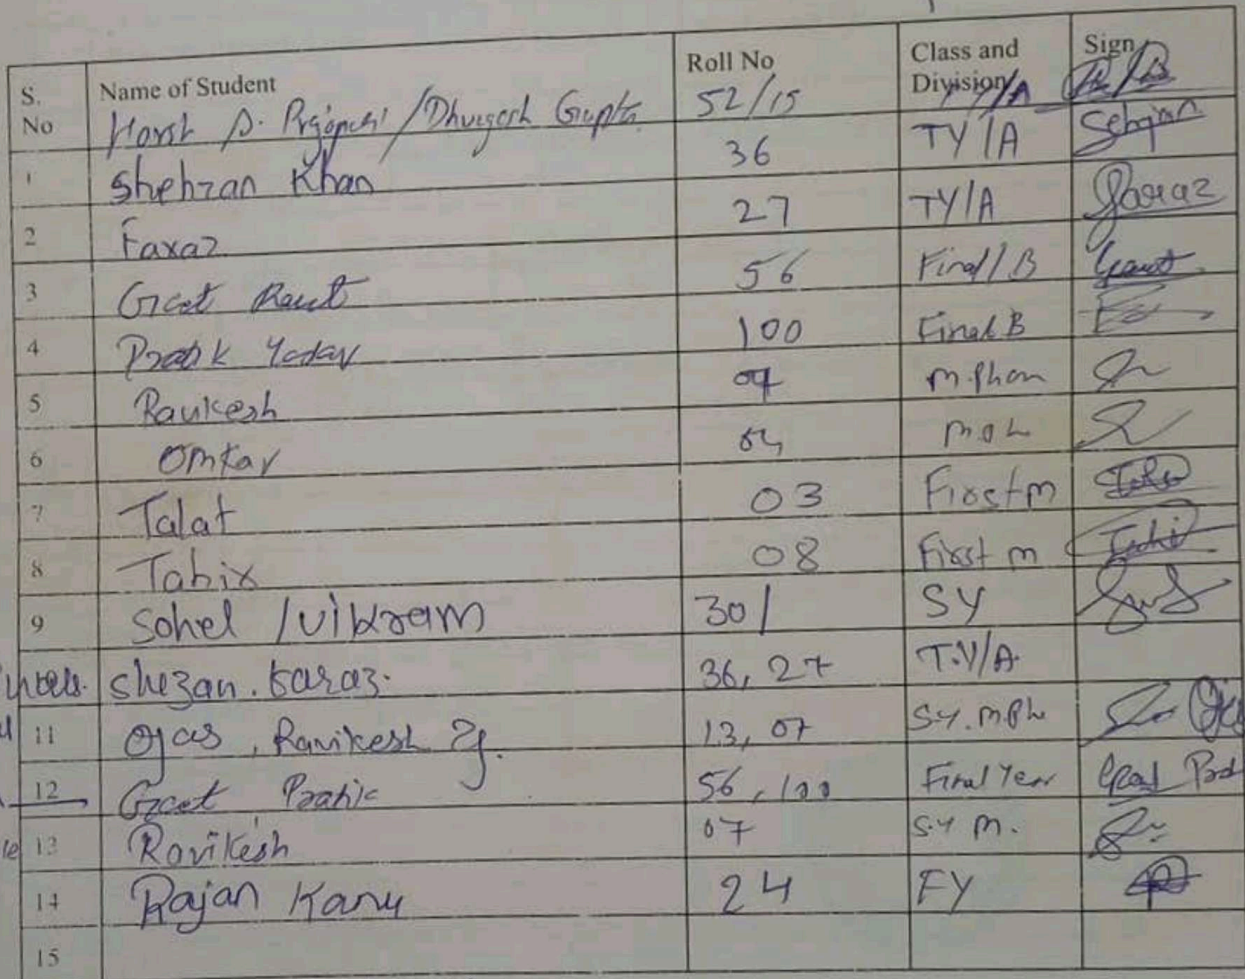 S. No Name of Student Roll No Class and Division Sign
Harsh D. /Dhrugesh Gupta 52/15 /A
1 Shehzan Khan 36 TY/A Sehjan
2 Faraz 27 TY/A Faraz
3 Geet Raut 56 Final/B
4 Pratik Yadav 100 Final B
5 Ravikesh 07 M.Pharm
6 Omkar 04
7 Talat 03 First M
8 Tahir 08 First M
9 Sohel /Vikram 30/ SY
Shezan. Faraz. 36, 27 T.Y/A.
11 Ojas, Ravikesh 13, 07 S.Y. M.Ph
12 Geet Pratik 56, 100 Final Year
13 Ravikesh 07 S.Y M.
14 Rajan Kanu 24 FY
15